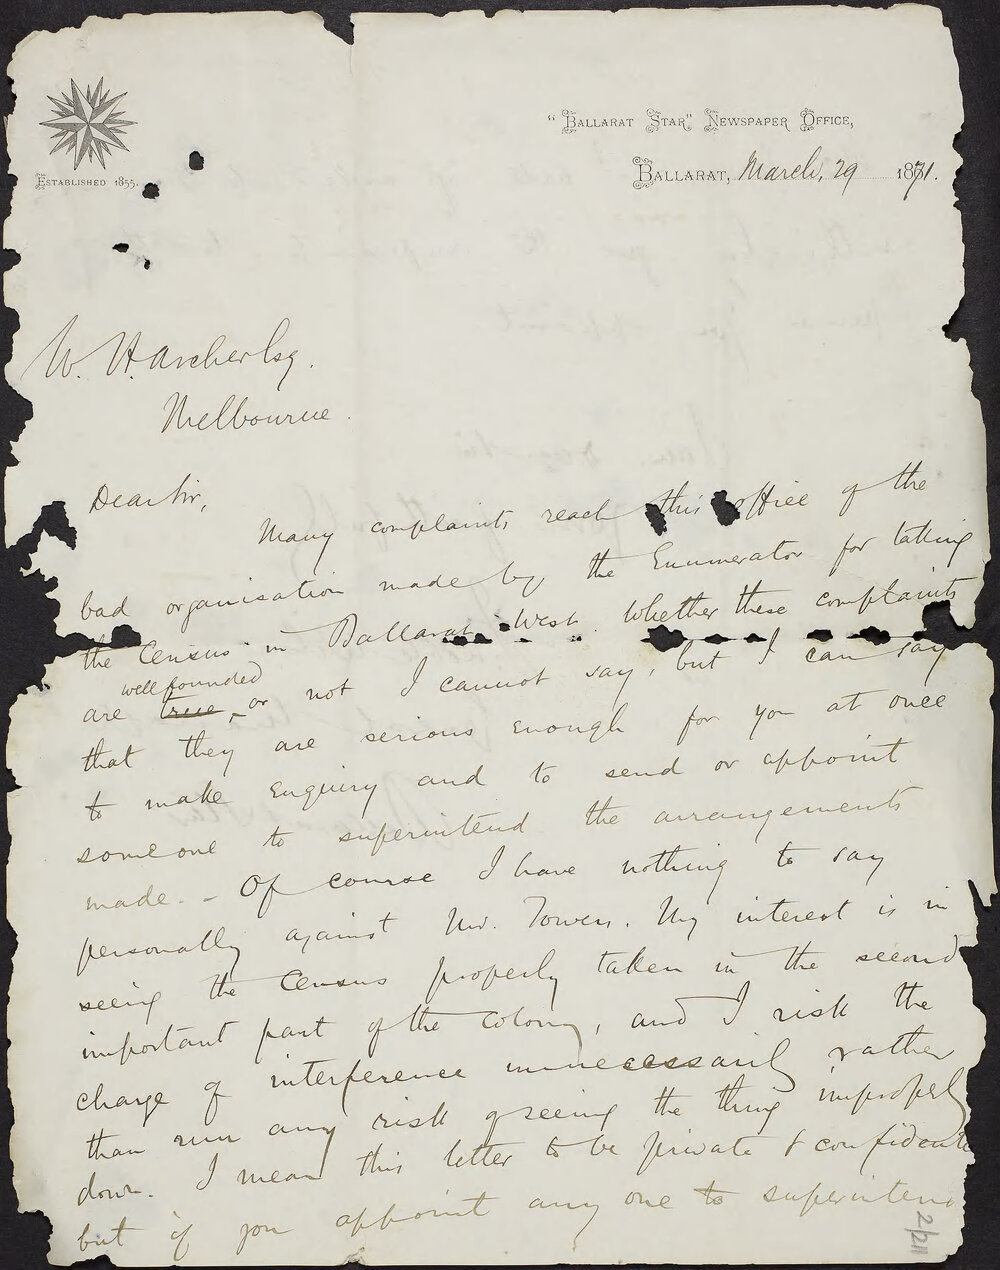 "BALLARAT STAR" NEWSPAPER OFFICE,
ESTABLISHED 1855.
BALLARAT, March, 29 1871.
W. H. Archer Esq.
Melbourne.
Dear Sir,
Many complaints reach this office of the
bad organisation made by the Enumerator for taking
the Census in Ballarat West. Whether these complaints
well founded
are true, or not I cannot say, but I can say
that they are serious enough for you at once
to make enquiry and to send or appoint
someone to superintend the arrangements
made. - Of course I have nothing to say
personally against Mr. Towers. My interest is in
seeing the Census properly taken in the second
important part of the colony, and I risk the
charge of interference unnecessarily rather
than run any risk of seeing the thing improperly
done. I mean this letter to be private & confidential
but if you appoint any one to superintend
2/211